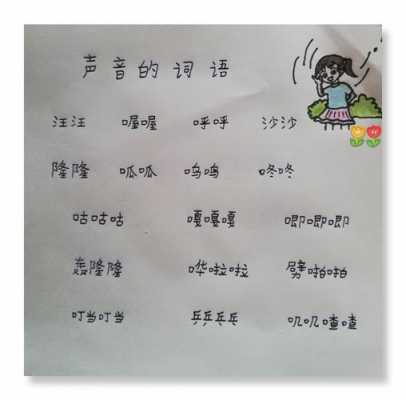 声音的词语
汪汪 喔喔 呼呼 沙沙
隆隆 呱呱 呜呜 咚咚
咕咕咕 嘎嘎嘎 唧唧唧
轰隆隆 哗啦啦 劈啪啪
叮当叮当 乒乒乓乓 叽叽喳喳